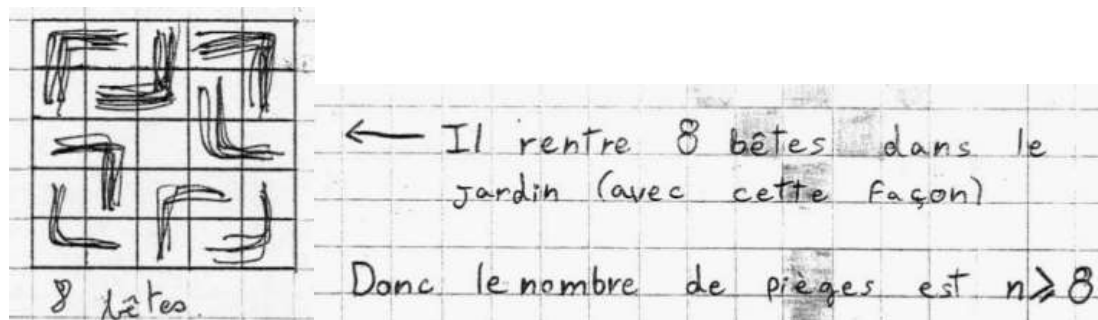 8 bêtes.
← Il rentre 8 bêtes dans le
jardin (avec cette façon)
Donc le nombre de pièges est n ⩾ 8